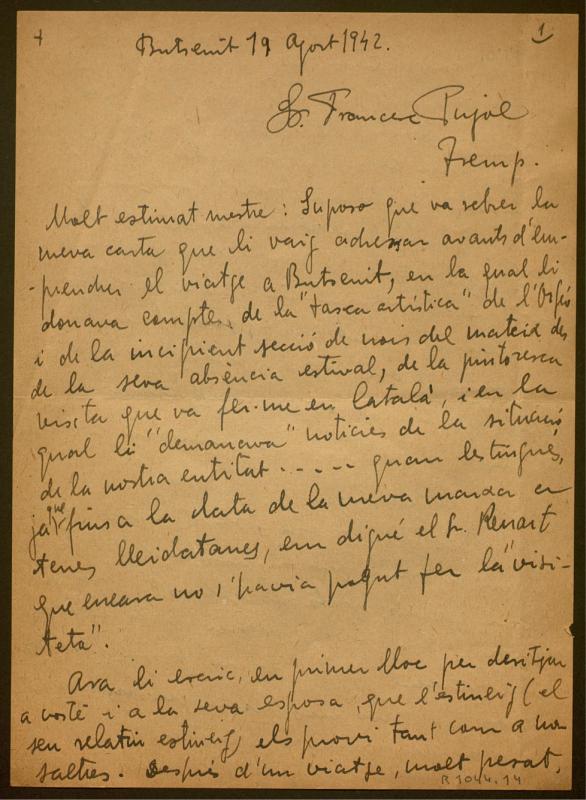 +
1
Butsenit 19 Agost 1942.
Sr. Francesc Pujol
Tremp.
Molt estimat mestre: Suposo que va rebre la
meva carta que li vaig adressar avants d'em-
-prendre el viatge a Butsenit, en la qual li
donava compte de la "tasca artística" de l'Orfeó
i de la incipient secció de nois del mateix des
de la seva absència estival, de la pintoresca
visita que va fer-me en Català, i en la
qual li "demanava" noticies de la situació
de la nostra entitat ..... quan les tingués,
ja que fins a la data de la meva marxa a
terres lleidatanes, em digué el Sr. Renart
que encara no s'havia pogut fer la "visi-
teta".
Ara li escric, en primer lloc per desitjar
a vostè i a la seva esposa, que l'estiueig (el
seu relatiu estiueig) els provi tant com a no-
saltres. Després d'un viatge, molt pesat,
R 1044.14